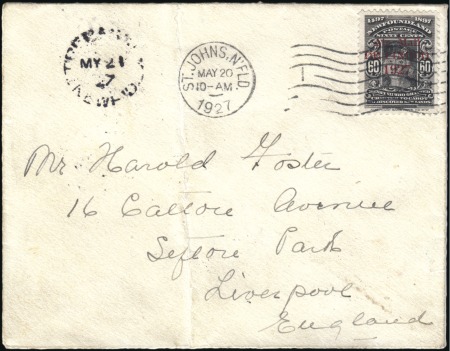 MY 21
27
ST. JOHN'S. N'FLD.
MAY 20
10-AM
1927
1497 1897
NEWFOUNDLAND
POSTAGE
SIXTY CENTS
60 60
Mr Harold Foster
16 Calton Avenue
Sefton Park
Liverpool
England